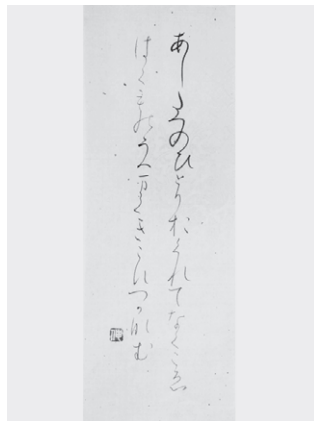 あしたつのひとりおくれてなくこゑ
はくものうへまてきこえつかなむ